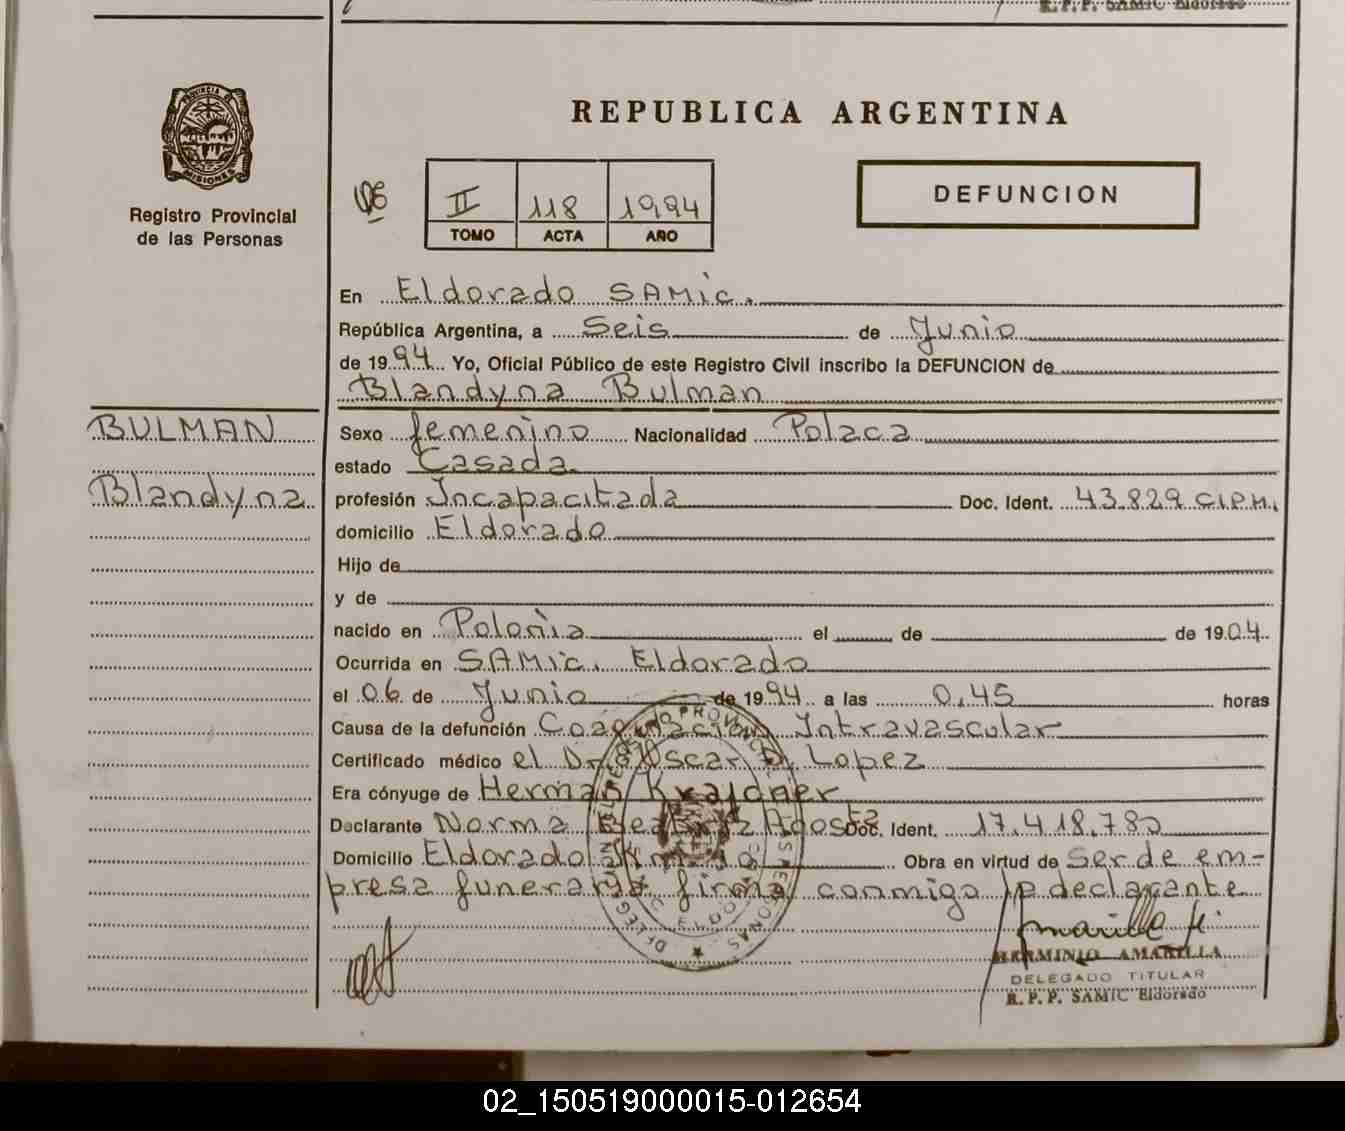 R.P.P. SAMIC Eldorado
PROVINCIA DE
MISIONES
Registro Provincial
de las Personas
REPUBLICA ARGENTINA
II 118 1994
TOMO ACTA AÑO
DEFUNCION
En Eldorado SAMic.
República Argentina, a Seis de Junio
de 1994 Yo, Oficial Público de este Registro Civil inscribo la DEFUNCION de
Blandyna Bulman
BULMAN
Blandyna
Sexo femenino Nacionalidad Polaca
estado Casada
profesión Incapacitada Doc. Ident. 43.829 CIPM.
domicilio Eldorado
Hijo de
y de
nacido en Polonia el de de 1904
Ocurrida en SAMic. Eldorado
el 06 de Junio de 1994 a las 0,45 horas
Causa de la defunción Coagulación Intravascular
Certificado médico el Dr. Oscar Lopez
Era cónyuge de Herman Krajdner
Declarante Norma Beatriz Agosta Doc. Ident. 17.418.780
Domicilio Eldorado Km Obra en virtud de Ser de em-
presa funeraria firma conmigo la declarante
HERMINIO AMARILLA
DELEGADO TITULAR
R. P. P. SAMIC Eldorado
02_150519000015-012654